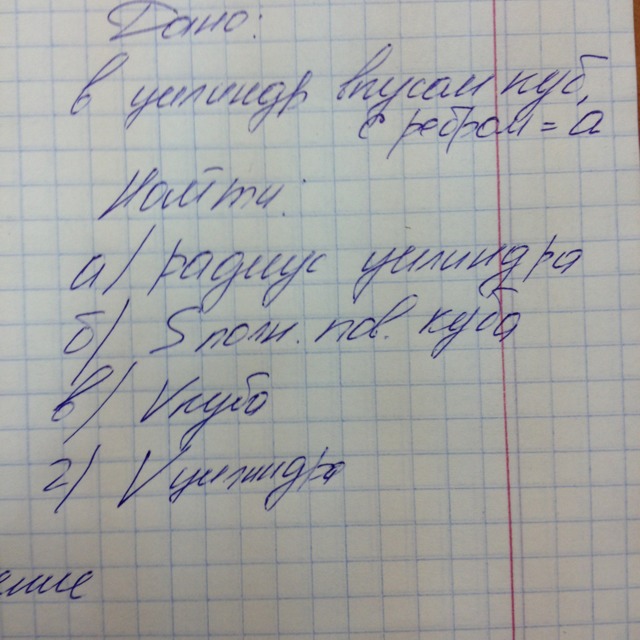 Дано:
в цилиндр вписан куб,
с ребром = a
Найти:
а) радиус цилиндра
б) S полн. пов. куба
в) V куба
г) V цилиндра
ение